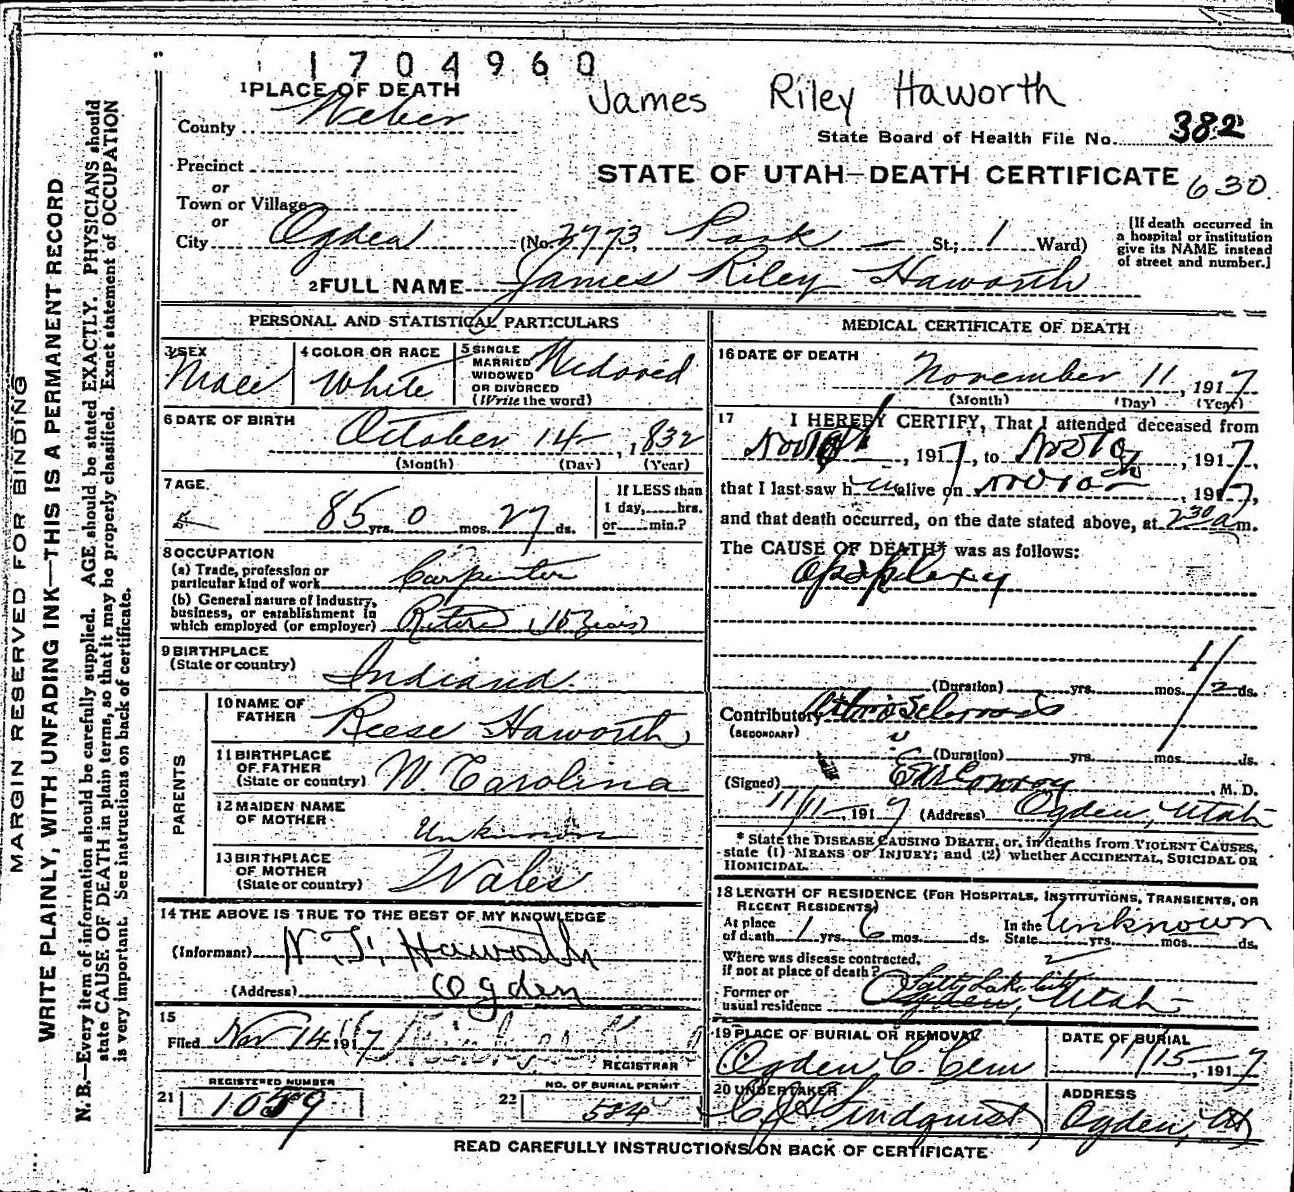 1704960
James Riley Haworth
1 PLACE OF DEATH
County Weber
State Board of Health File No. 382
Precinct
or
Town or Village
or
STATE OF UTAH—DEATH CERTIFICATE 630
City Ogden (No. 3773, Park St.; 1 Ward)
[If death occurred in a hospital or institution give its NAME instead of street and number.]
2 FULL NAME James Riley Haworth
PERSONAL AND STATISTICAL PARTICULARS
3 SEX Male
4 COLOR OR RACE White
5 SINGLE MARRIED WIDOWED OR DIVORCED (Write the word)
6 DATE OF BIRTH October 14 , 1832
(Month) (Day) (Year)
7 AGE
85 yrs. 0 mos. 27 ds.
If LESS than 1 day, hrs. or min.?
8 OCCUPATION
(a) Trade, profession or particular kind of work Carpenter
(b) General nature of industry, business, or establishment in which employed (or employer) Retired
9 BIRTHPLACE (State or country) Indiana
PARENTS
10 NAME OF FATHER Reese Haworth
11 BIRTHPLACE OF FATHER (State or country) N. Carolina
12 MAIDEN NAME OF MOTHER Unknown
13 BIRTHPLACE OF MOTHER (State or country) Wales
14 THE ABOVE IS TRUE TO THE BEST OF MY KNOWLEDGE
(Informant) N. T. Haworth
(Address) Ogden
15
Filed Nov 14 1917
REGISTRAR
21 REGISTERED NUMBER 1059
22 NO. OF BURIAL PERMIT 584
MEDICAL CERTIFICATE OF DEATH
16 DATE OF DEATH
November 11, 1917
(Month) (Day) (Year)
17 I HEREBY CERTIFY, That I attended deceased from
Nov 10th , 1917, to Nov 10th , 1917,
that I last saw him alive on Nov 10th , 1917,
and that death occurred, on the date stated above, at 230 a m.
The CAUSE OF DEATH* was as follows:
Apoplexy
(Duration) yrs. mos. 1/2 ds.
Contributory
(SECONDARY)
(Duration) yrs. mos. ds.
(Signed) E M Conroy , M. D.
11/11 , 1917 (Address) Ogden, Utah
* State the DISEASE CAUSING DEATH, or, in deaths from VIOLENT CAUSES,
state (1) MEANS OF INJURY; and (2) whether ACCIDENTAL, SUICIDAL OR
HOMICIDAL.
18 LENGTH OF RESIDENCE (FOR HOSPITALS, INSTITUTIONS, TRANSIENTS, OR
RECENT RESIDENTS)
At place of death 1 yrs. 6 mos. ds. In the State Unknown yrs. mos. ds.
Where was disease contracted,
if not at place of death?
Former or usual residence Salt Lake City Ogden, Utah
19 PLACE OF BURIAL OR REMOVAL Ogden C. Cem
DATE OF BURIAL 11/15, 1917
20 UNDERTAKER Lindquist
ADDRESS Ogden, Ut
READ CAREFULLY INSTRUCTIONS ON BACK OF CERTIFICATE
MARGIN RESERVED FOR BINDING
WRITE PLAINLY, WITH UNFADING INK—THIS IS A PERMANENT RECORD
N. B.—Every item of information should be carefully supplied. AGE should be stated EXACTLY. PHYSICIANS should
state CAUSE OF DEATH in plain terms, so that it may be properly classified. Exact statement of OCCUPATION
is very important. See instructions on back of certificate.